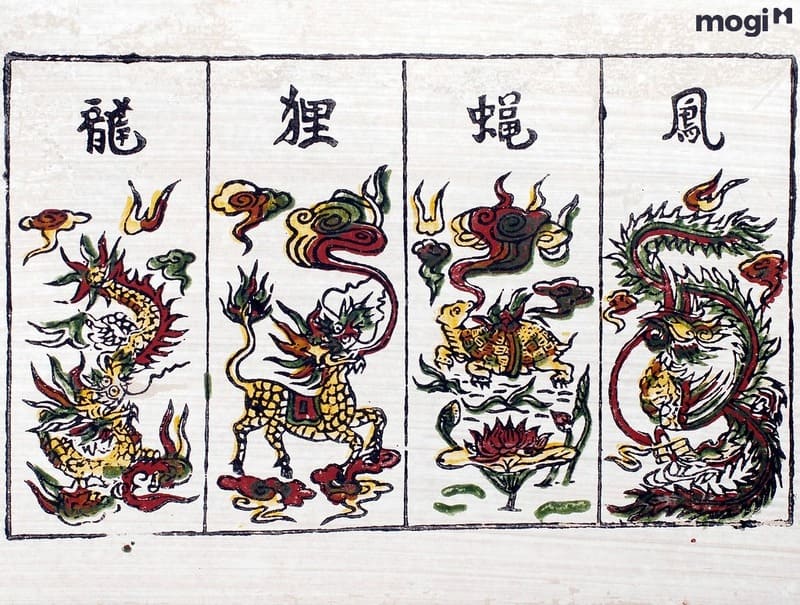 mogi M
龍 狸 蝇 鳳